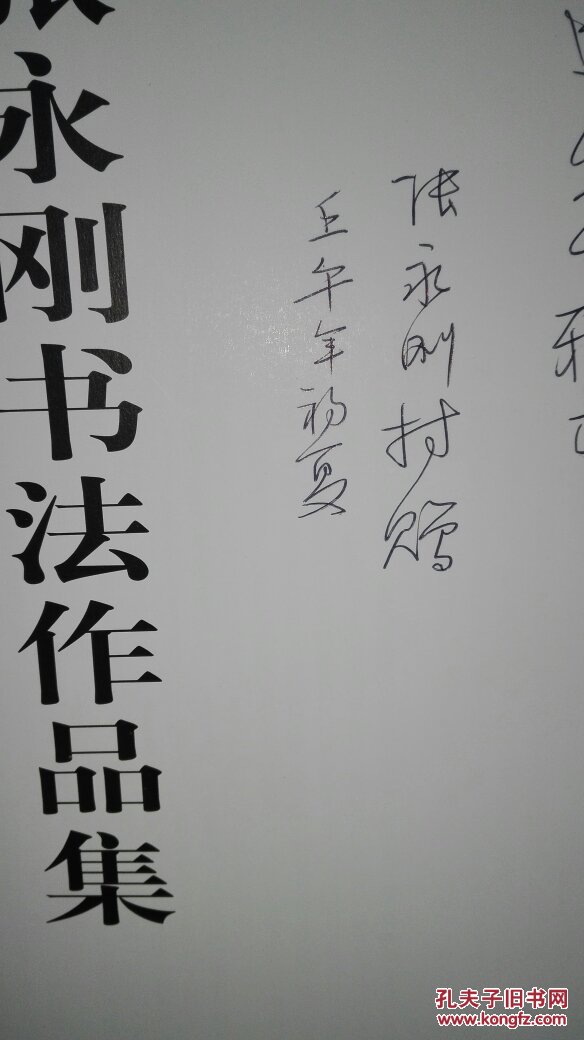 雅
张永刚封赠
壬午年初夏
张永刚书法作品集
孔夫子旧书网
www.kongfz.com